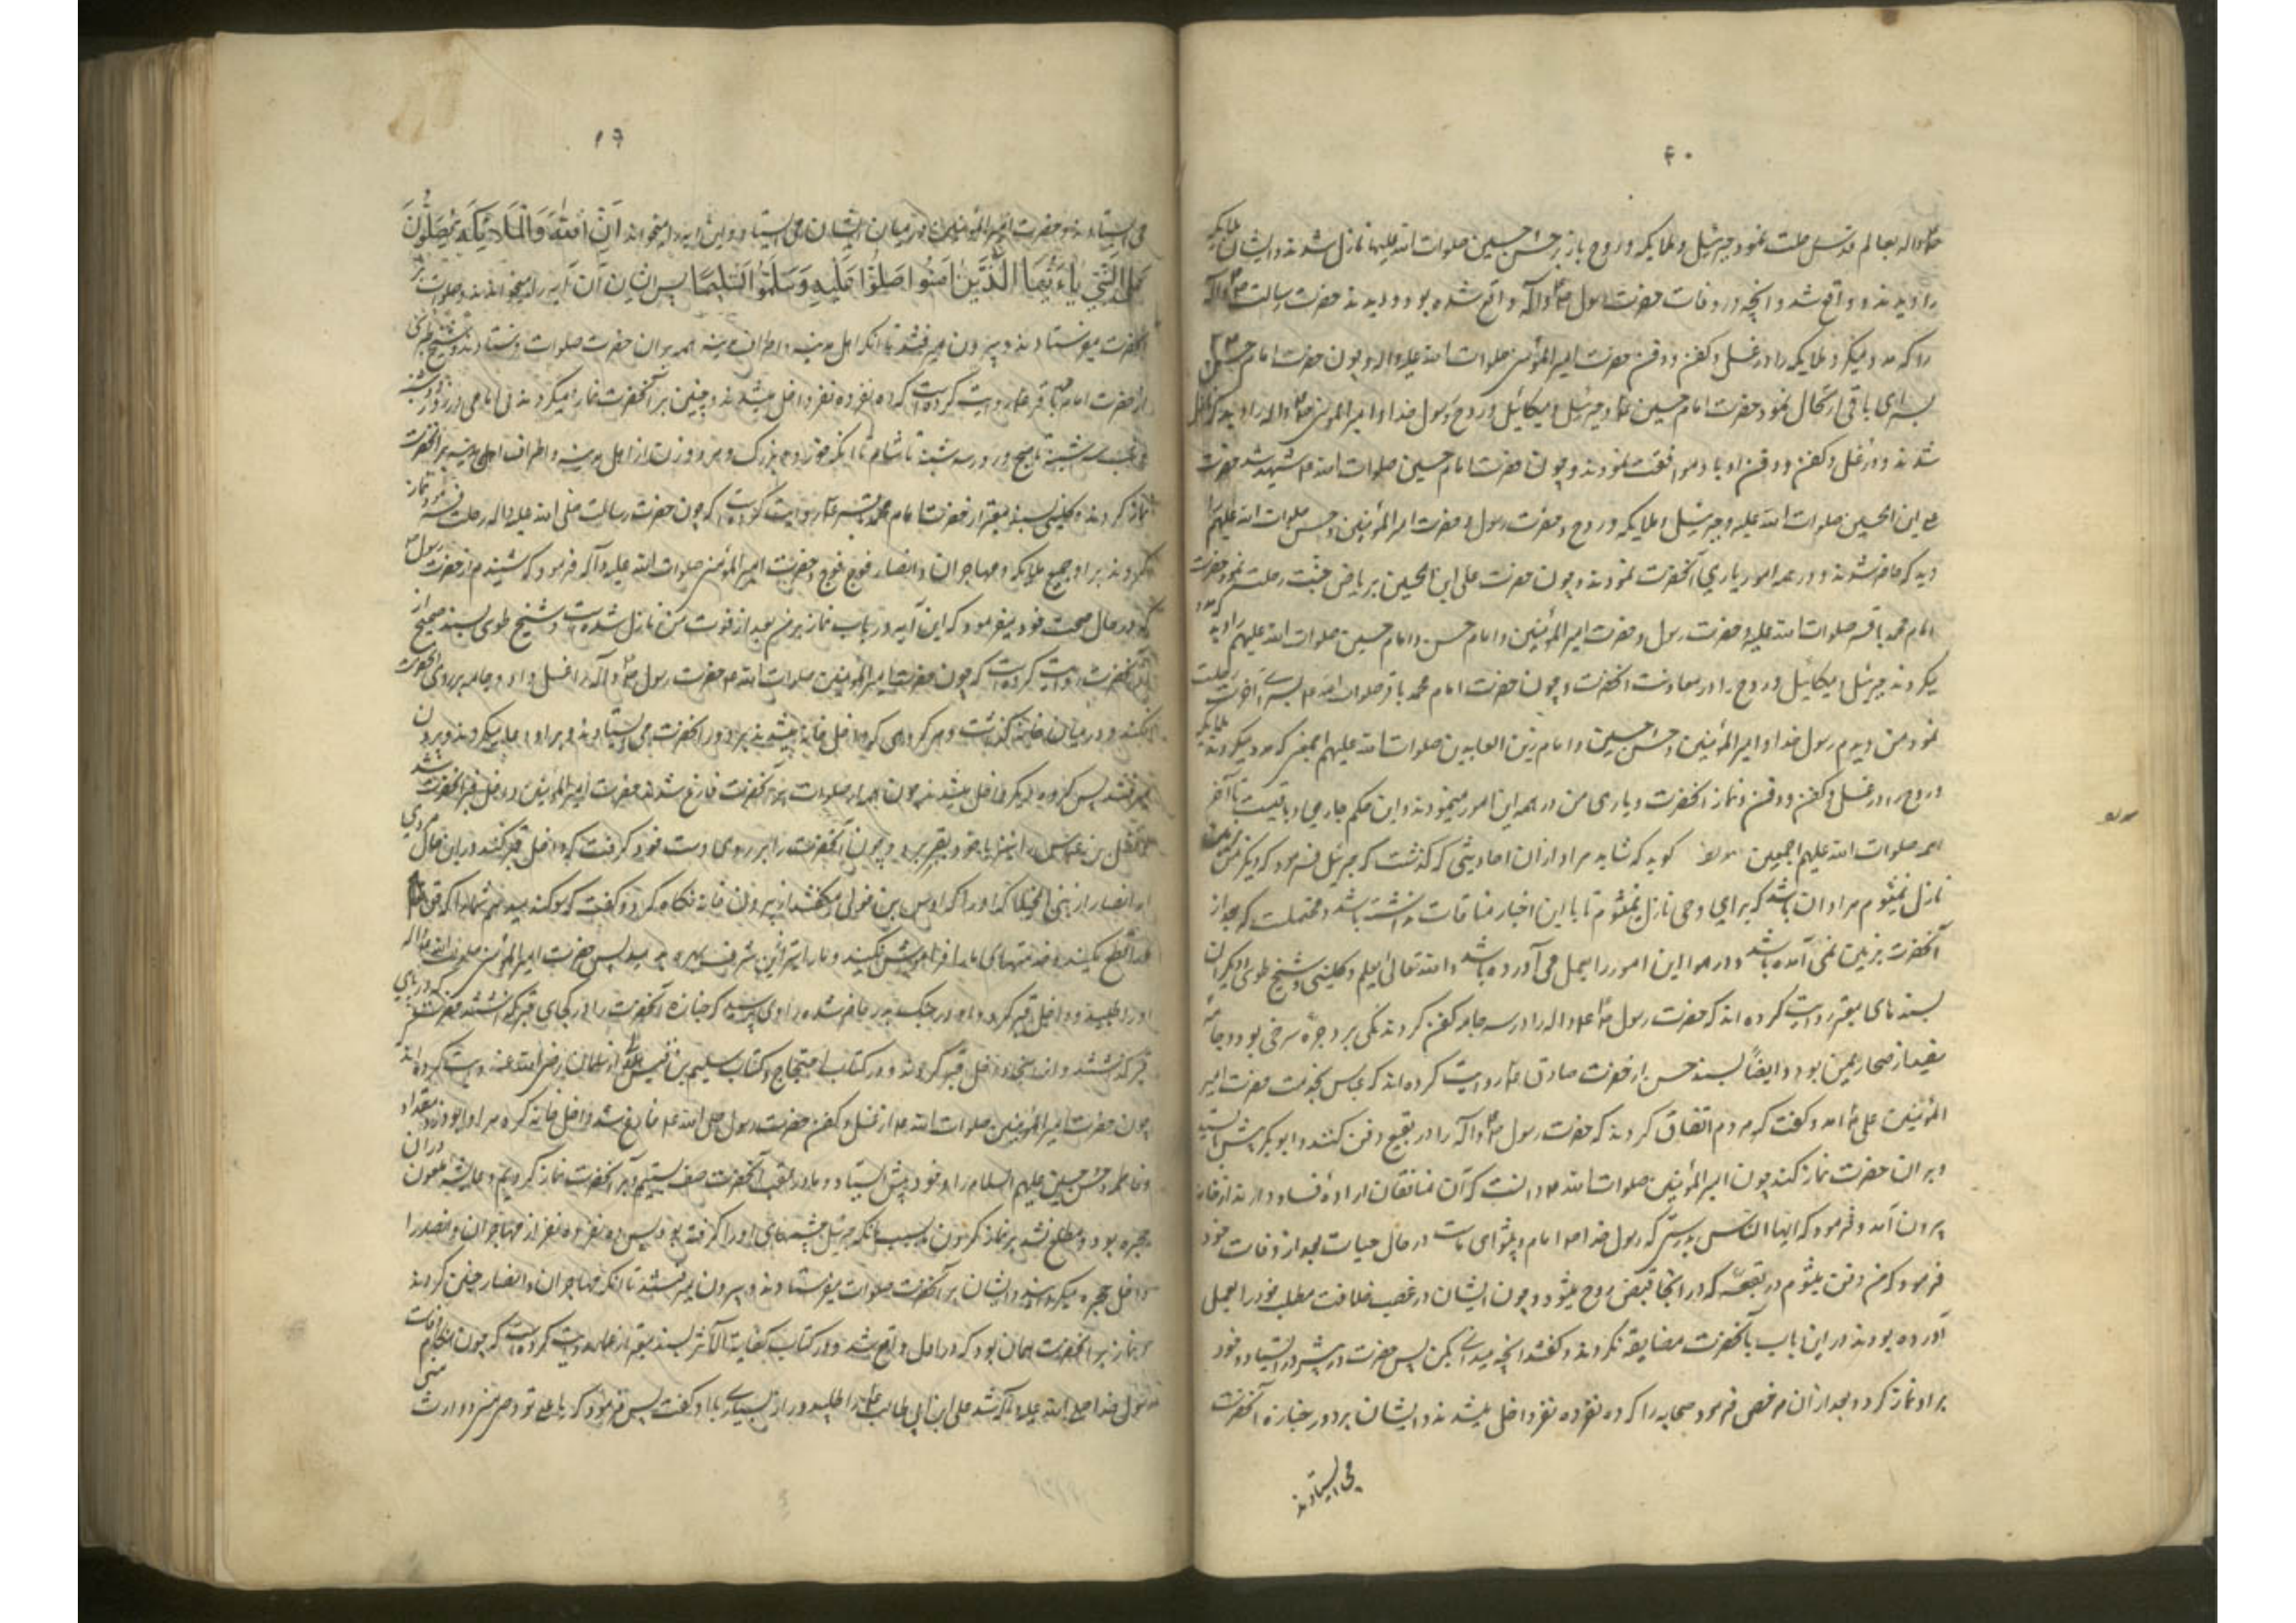 ۶۰
صلی الله علیه و آله بعالم قدس رحلت نمود جبرئیل و ملایکه و روح باز بر حسن و حسین صلوات الله علیهما نازل شدند و ایشان ملایکه
را دیدند و واقع شد آنچه در وفات حضرت رسول ص و آله واقع شده بود و دیدند حضرت رسالت ص و آله
را که مدد میکرد ملایکه را در غسل و کفن و دفن حضرت امیرالمؤمنین صلوات الله علیه و اله و چون حضرت امام حسن
بسرای باقی ارتحال نمود حضرت امام حسین ع جبرئیل و میکائیل و روح و رسول خدا و امیرالمومنین ص و اله را دید که نازل
شدند و در غسل و کفن و دفن او با او موافقت نمودند و چون حضرت امام حسین صلوات الله ع شهید شد حضرت
علی ابن الحسین صلوات الله علیه و جبرئیل و ملایکه و روح و حضرت رسول و حضرت امیرالمؤمنین و حسن صلوات الله علیهم
دید که حاضر شدند و در همه امور یاری آنحضرت نمودند و چون حضرت علی ابن الحسین بریاض جنت رحلت نمود حضرت
امام محمد باقر صلوات الله علیه و حضرت رسول و حضرت امیرالمؤمنین و امام حسن و امام حسین صلوات الله علیهم را دید که مدد
میکردند جبرئیل و میکائیل و روح را در معاونت آنحضرت و چون حضرت امام محمد باقر صلوات الله ع بسرای آخرت رحلت
نمود من دیدم رسول خدا و امیرالمؤمنین و حسن و حسین و امام زین العابدین صلوات الله علیهم اجمعین که مدد میکردند ملایکه
و روح را در غسل و کفن و دفن و نماز آنحضرت و یاری من در همه این امور مینمودند و این حکم جاری و باقیست تا آخر
ائمه صلوات الله علیهم اجمعین مولف گوید که شاید مراد از آن احادیثی که گذشت که جبرئیل فرمود که دیگر من بزمین
نازل نمیشوم مراد آن باشد که برای وحی نازل نمیشوم تا با این اخبار منافات نداشته باشد و محتملست که بعد از
آنحضرت بزمین نمی آمده باشد و در هوا این امور را بعمل می آورده باشد و الله تعالی یعلم و کلینی و شیخ طوسی و دیگران
بسندهای معتبر روایت کرده اند که حضرت رسول ص ع و اله را در سه جامه کفن کردند یکی برد حبره سرخی بود و دو جامه
سفید از صحار یمن بود و ایضاً بسند حسن از حضرت صادق ع روایت کرده اند که عباس بخدمت حضرت امیر
المؤمنین علی ع آمد و گفت که مردم اتفاق کردند که حضرت رسول ص و آله را در بقیع دفن کنند و ابوبکر پیش ایستد
و بر آن حضرت نماز کند چون امیرالمؤمنین صلوات الله ع دانست که آن منافقان اراده فساد دارند از خانه
بیرون آمد و فرمود که ایها الناس بدرستی که رسول خدا ص امام و پیشوای ماست در حال حیات و بعد از وفات خود
فرمود که من دفن میشوم در بقعه که در آنجا قبض روح میشود و چون ایشان در غصب خلافت مطلب خود را بعمل
آورده بودند در این باب با آنحضرت مضایقه نکردند و گفتند آنچه میدانی بکن پس حضرت در پیش در ایستاد و خود
بر او نماز کرد و بعد از آن مرخص فرمود صحابه را که ده نفر ده نفر داخل میشدند و ایشان بر دور جنازه آنحضرت
می ایستادند
مولف
۶۱
می ایستادند و حضرت امیرالمؤمنین در میان ایشان می ایستاد و این آیه را میخواند اِنَّ اللهَ وَالْمَلائِکَةَ یُصَلُّونَ
عَلَی النَّبِیِّ یا اَیُّهَا الَّذینَ امَنُوا صَلُّوا عَلَیْهِ وَسَلِّمُوا تَسْلیما پس ایشان آن آیه را میخواندند و صلوات بر
آنحضرت میفرستادند و بیرون میرفتند تا آنکه اهل مدینه و اطراف مدینه همه بر آن حضرت صلوات فرستادند و شیخ طبرسی
از حضرت امام محمد باقر ع روایت کرده است که ده نفر ده نفر داخل میشدند و چنین بر آنحضرت نماز میکردند بی امامی در روز دوشنبه
و شب سه شنبه تا صبح و روز سه شنبه تا شام تا آنکه خورد و بزرگ و مرد و زن از اهل مدینه و اطراف اهل مدینه بر آنحضرت
نماز کردند و کلینی بسند معتبر از حضرت امام محمد باقر ع روایت کرده است که چون حضرت رسالت صلی الله علیه و اله رحلت فرمود نماز
کردند بر او جمیع ملایکه و مهاجران و انصار فوج فوج و حضرت امیرالمؤمنین صلوات الله علیه و آله فرمود که شنیدم از حضرت رسول ص
که در حال صحت خود میفرمود که این آیه در باب نماز بر من بعد از فوت من نازل شده است و شیخ طوسی بسند صحیح از
آنحضرت روایت کرده است که چون حضرت امیرالمؤمنین صلوات الله ع حضرت رسول ص و آله را غسل داد و جامه بر روی آنحضرت
افکند و در میان خانه گذاشت و هر گروهی که داخل خانه میشدند بر دور آنحضرت می ایستادند و بر او دعا میکردند و بیرون
میرفتند پس گروه دیگر داخل میشدند چون همه از صلوات بر آنحضرت فارغ شدند حضرت امیرالمؤمنین داخل قبر آنحضرت شد
و فضل بن عباس را نیز با خود بقبر برد و چون آنحضرت را بر روی دست خود گرفت که داخل قبر کند در این حال مردی
از انصار از بنی الخیلا که او را اوس بن خولی میگفتند از بیرون خانه نگاه کرد و گفت که سوگند میدهم شما را که حق ما را
قطع نکنید و خدمتهای ما را فراموش نکنید و ما را نیز از این شرف بهره دهید پس حضرت امیرالمؤمنین صلوات الله علیه و اله
او را طلبید و داخل قبر کرد و او در جنگ بدر حاضر شده راوی پرسید که جنازه آنحضرت را در کجای قبر گذاشتند حضرت گفت که در پای
قبر گذاشتند و از آنجا داخل قبر کردند و در کتاب احتجاج و کتاب سلیم بن قیس هلالی از سلمان رضی الله عنه روایت کرده اند
چون حضرت امیرالمؤمنین صلوات الله ع از غسل و کفن حضرت رسول صلی الله ع فارغ شد داخل خانه کرد مرا و ابوذر و مقداد
و فاطمه و حسن و حسین علیهم السلام را و خود پیش ایستاد و ما در عقب آنحضرت صف بستیم و بر آنحضرت نماز کردیم و عایشه ملعونه در آن
حجره بود و مطلع نشد بر نماز کردن ما بسبب آنکه جبرئیل چشمهای او را گرفته بود پس ده نفر ده نفر از مهاجران و انصار را
داخل حجره میکردند و ایشان بر آنحضرت صلوات میفرستادند و بیرون میرفتند تا آنکه مهاجران و انصار چنین کردند
و نماز بر آنحضرت همان بود که در اول واقع شد و در کتاب کفایة الاثر بسند معتبر از عمار روایت کرده است که چون هنگام وفات
رسول خدا صلی الله علیه و آله شد علی ابن ابی طالب ع را طلبید و راز بسیاری با او گفت پس فرمود که یا علی تو وصی منی و وارث منی